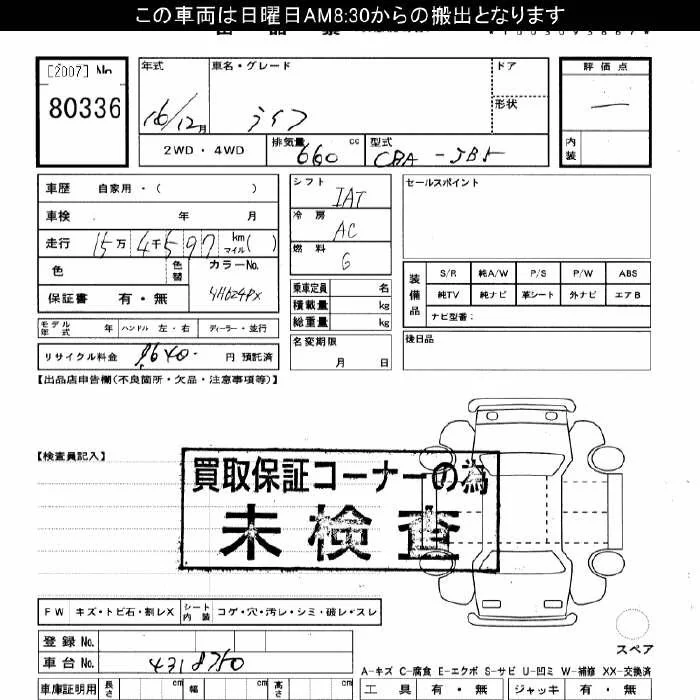 この車両は日曜日AM8:30からの搬出となります
[2007] No
80336
年式
16/12月
車名・グレード
ライフ
ドア
形状
評価点
—
内装
2WD・4WD
排気量 660 cc
型式 CBA-JB5
車歴 自家用・( )
車検 年 月
走行 15万4千597 km マイル( )
色 色替 カラーNo.
保証書 有・無
シフト IAT
冷房 AC
燃料 G
乗車定員 名
積載量 kg
総重量 kg
名変期限
月 日
セールスポイント
装備品
S/R 純A/W P/S P/W ABS
純TV 純ナビ 革シート 外ナビ エアB
ナビ型番:
後日品
モデル年式 年 ハンドル 左・右 ディーラー・並行
リサイクル料金 9640. 円 預託済
【出品店申告欄(不良箇所・欠品・注意事項等)】
【検査員記入】
買取保証コーナーの為
未検査
FW キズ・トビ石・割レX シート内装 コゲ・穴・汚レ・シミ・破レ・スレ
登録No.
車台No. 4318750
スペア
A-キズ C-腐食 E-エクボ S-サビ U-凹ミ W-補修 XX-交換済
車庫証明用 長さ cm 幅 cm 高さ cm
工具 有・無 ジャッキ 有・無